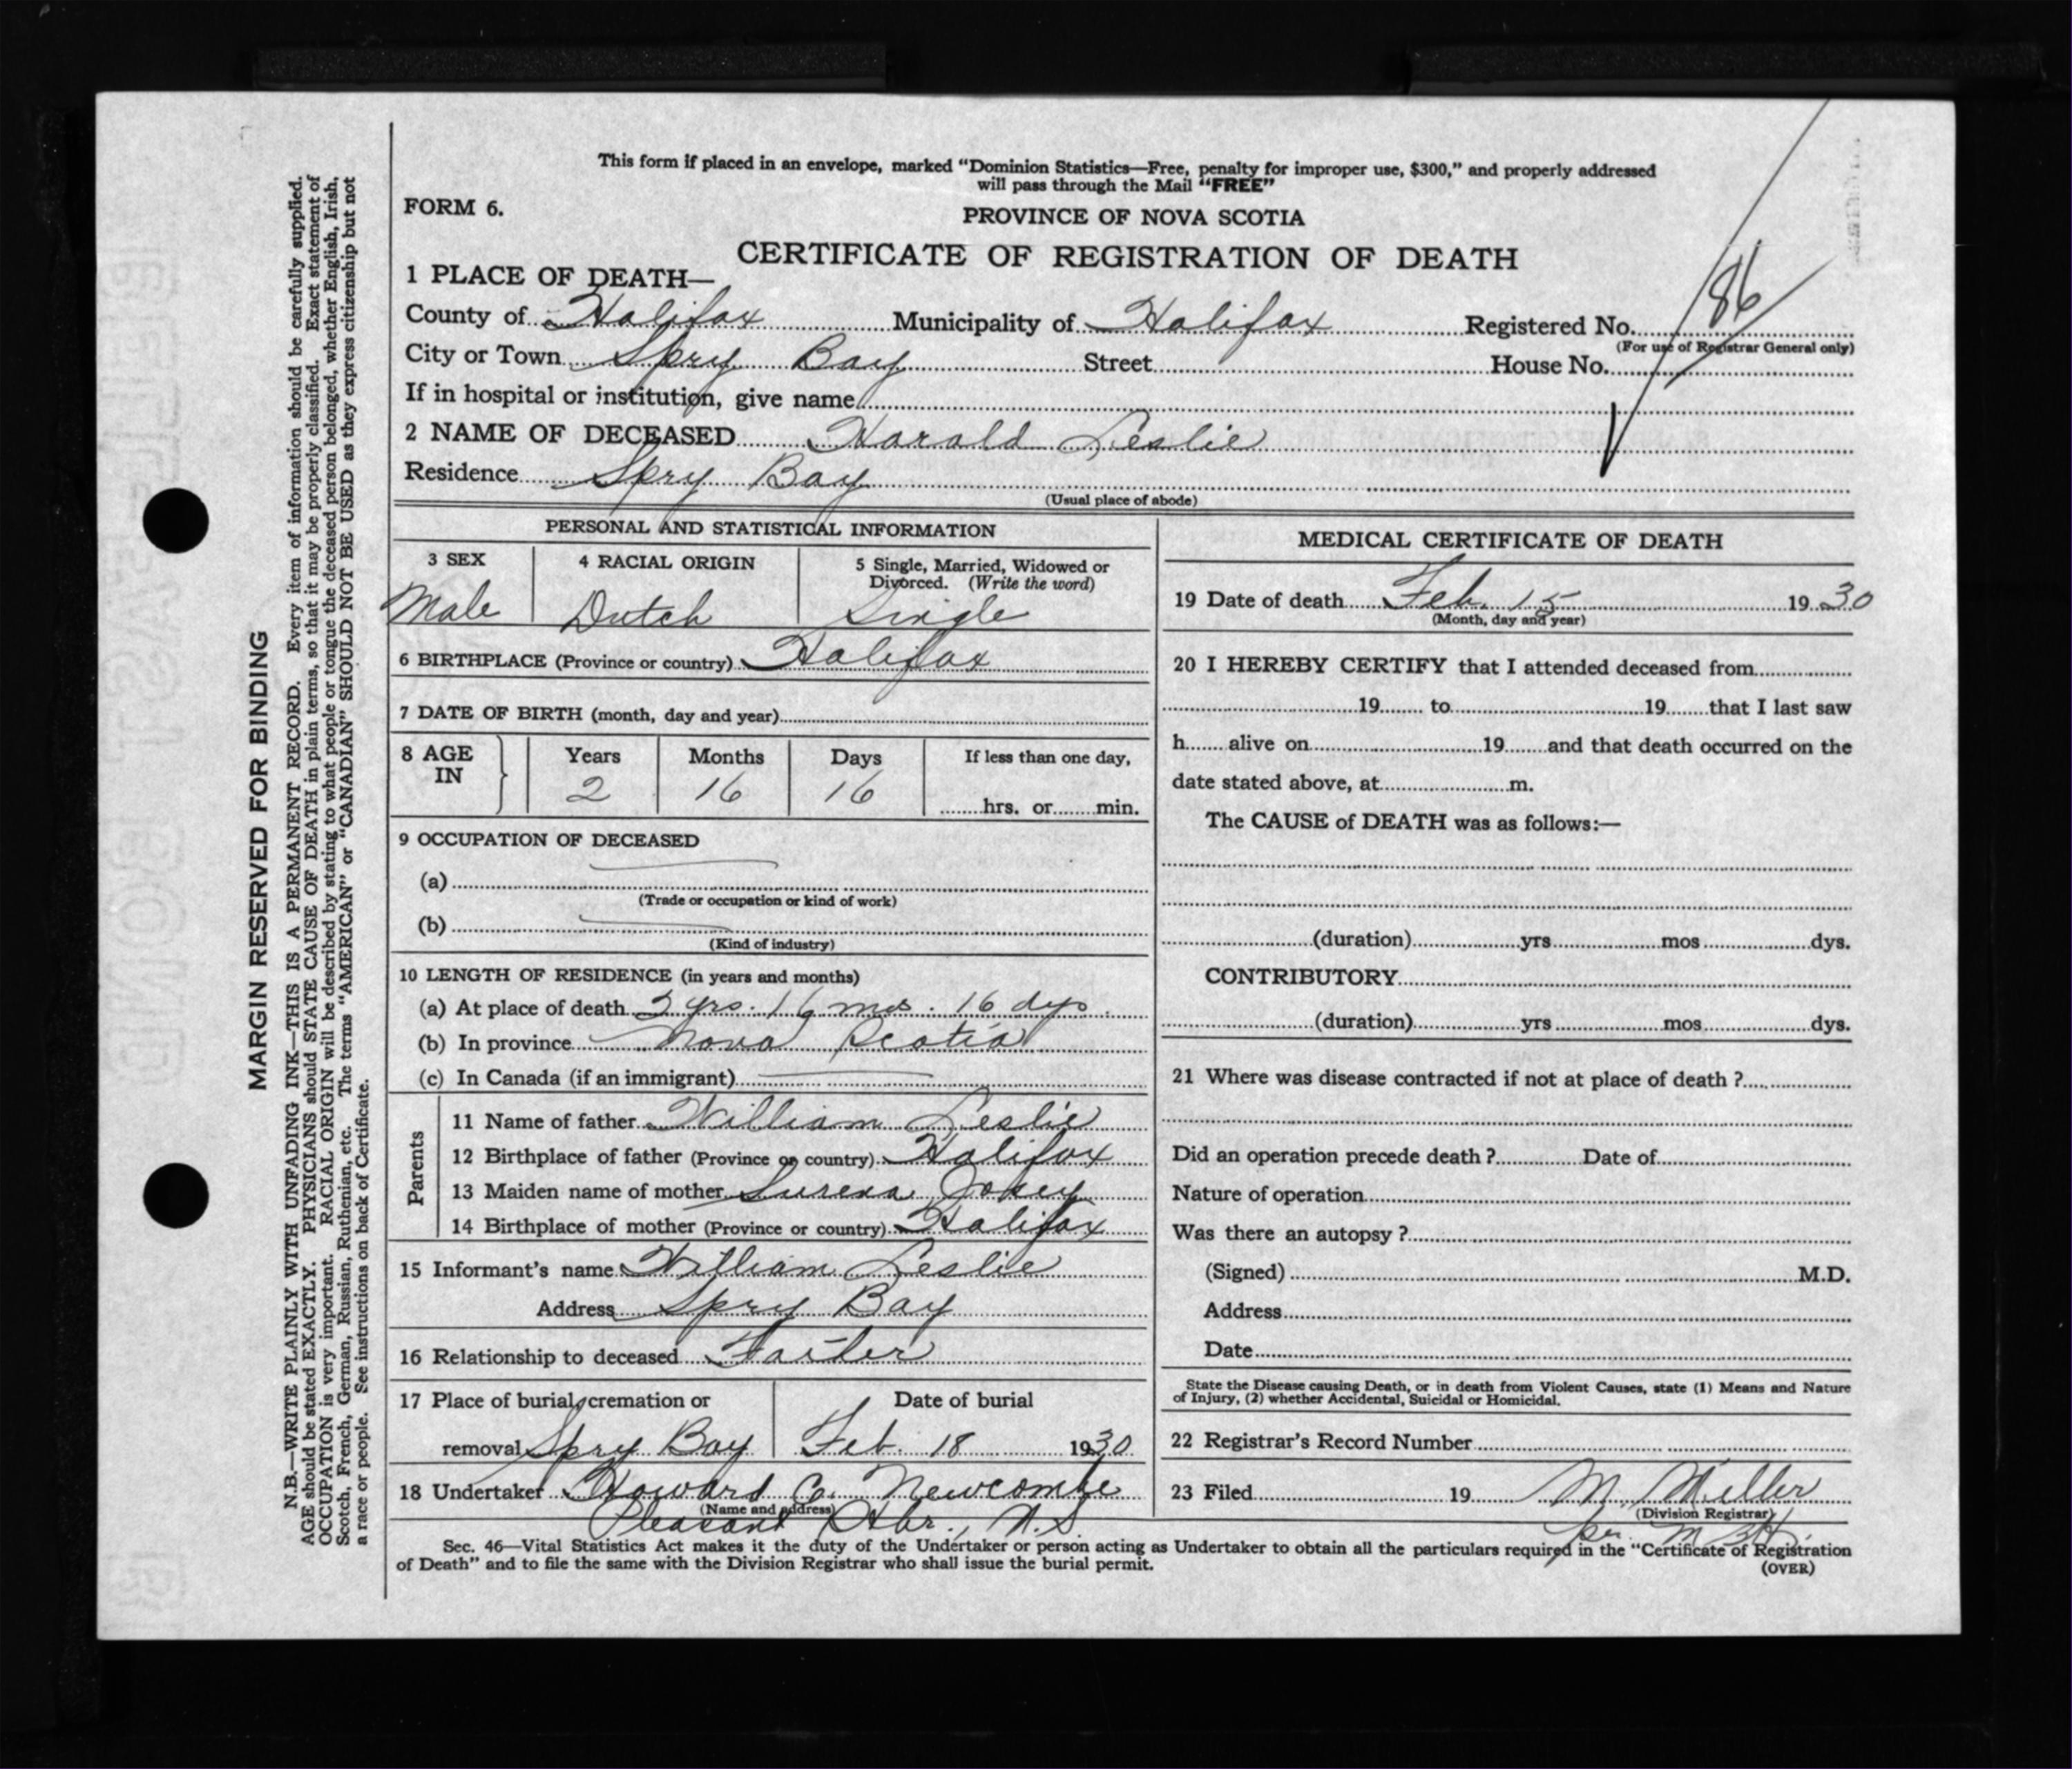 This form if placed in an envelope, marked “Dominion Statistics—Free, penalty for improper use, $300,” and properly addressed
will pass through the Mail “FREE”
FORM 6.
PROVINCE OF NOVA SCOTIA
CERTIFICATE OF REGISTRATION OF DEATH
1 PLACE OF DEATH—
County of Halifax Municipality of Halifax Registered No. 86
(For use of Registrar General only)
City or Town Spry Bay Street House No.
If in hospital or institution, give name
2 NAME OF DECEASED Harald Leslie
Residence Spry Bay
(Usual place of abode)
PERSONAL AND STATISTICAL INFORMATION
3 SEX
Male
4 RACIAL ORIGIN
Dutch
5 Single, Married, Widowed or
Divorced. (Write the word)
Single
6 BIRTHPLACE (Province or country) Halifax
7 DATE OF BIRTH (month, day and year)
8 AGE IN
Years Months Days If less than one day,
2 16 16 hrs. or min.
9 OCCUPATION OF DECEASED
(a)
(Trade or occupation or kind of work)
(b)
(Kind of industry)
10 LENGTH OF RESIDENCE (in years and months)
(a) At place of death 2 yrs. 16 mos. 16 dys.
(b) In province Nova Scotia
(c) In Canada (if an immigrant)
Parents
11 Name of father William Leslie
12 Birthplace of father (Province or country) Halifax
13 Maiden name of mother
14 Birthplace of mother (Province or country) Halifax
15 Informant's name William Leslie
Address Spry Bay
16 Relationship to deceased Father
17 Place of burial, cremation or
removal Spry Bay
Date of burial
Feb. 18 1930
18 Undertaker Howard C. Newcombe
(Name and address)
Pleasant Hbr., N.S.
MEDICAL CERTIFICATE OF DEATH
19 Date of death Feb. 15 1930
(Month, day and year)
20 I HEREBY CERTIFY that I attended deceased from
19 to 19 that I last saw
h alive on 19 and that death occurred on the
date stated above, at m.
The CAUSE of DEATH was as follows:—
(duration) yrs mos dys.
CONTRIBUTORY
(duration) yrs mos dys.
21 Where was disease contracted if not at place of death ?
Did an operation precede death ? Date of
Nature of operation
Was there an autopsy ?
(Signed) M.D.
Address
Date
State the Disease causing Death, or in death from Violent Causes, state (1) Means and Nature
of Injury, (2) whether Accidental, Suicidal or Homicidal.
22 Registrar's Record Number
23 Filed 19 M. Miller
(Division Registrar)
per
Sec. 46—Vital Statistics Act makes it the duty of the Undertaker or person acting as Undertaker to obtain all the particulars required in the “Certificate of Registration
of Death” and to file the same with the Division Registrar who shall issue the burial permit.
(OVER)
MARGIN RESERVED FOR BINDING
N.B.—WRITE PLAINLY WITH UNFADING INK—THIS IS A PERMANENT RECORD. Every item of information should be carefully supplied.
AGE should be stated EXACTLY. PHYSICIANS should STATE CAUSE OF DEATH in plain terms, so that it may be properly classified. Exact statement of
OCCUPATION is very important. RACIAL ORIGIN will be described by stating to what people or tongue the deceased person belonged, whether English, Irish,
Scotch, French, German, Russian, Ruthenian, etc. The terms “AMERICAN” or “CANADIAN” SHOULD NOT BE USED as they express citizenship but not
a race or people. See instructions on back of Certificate.